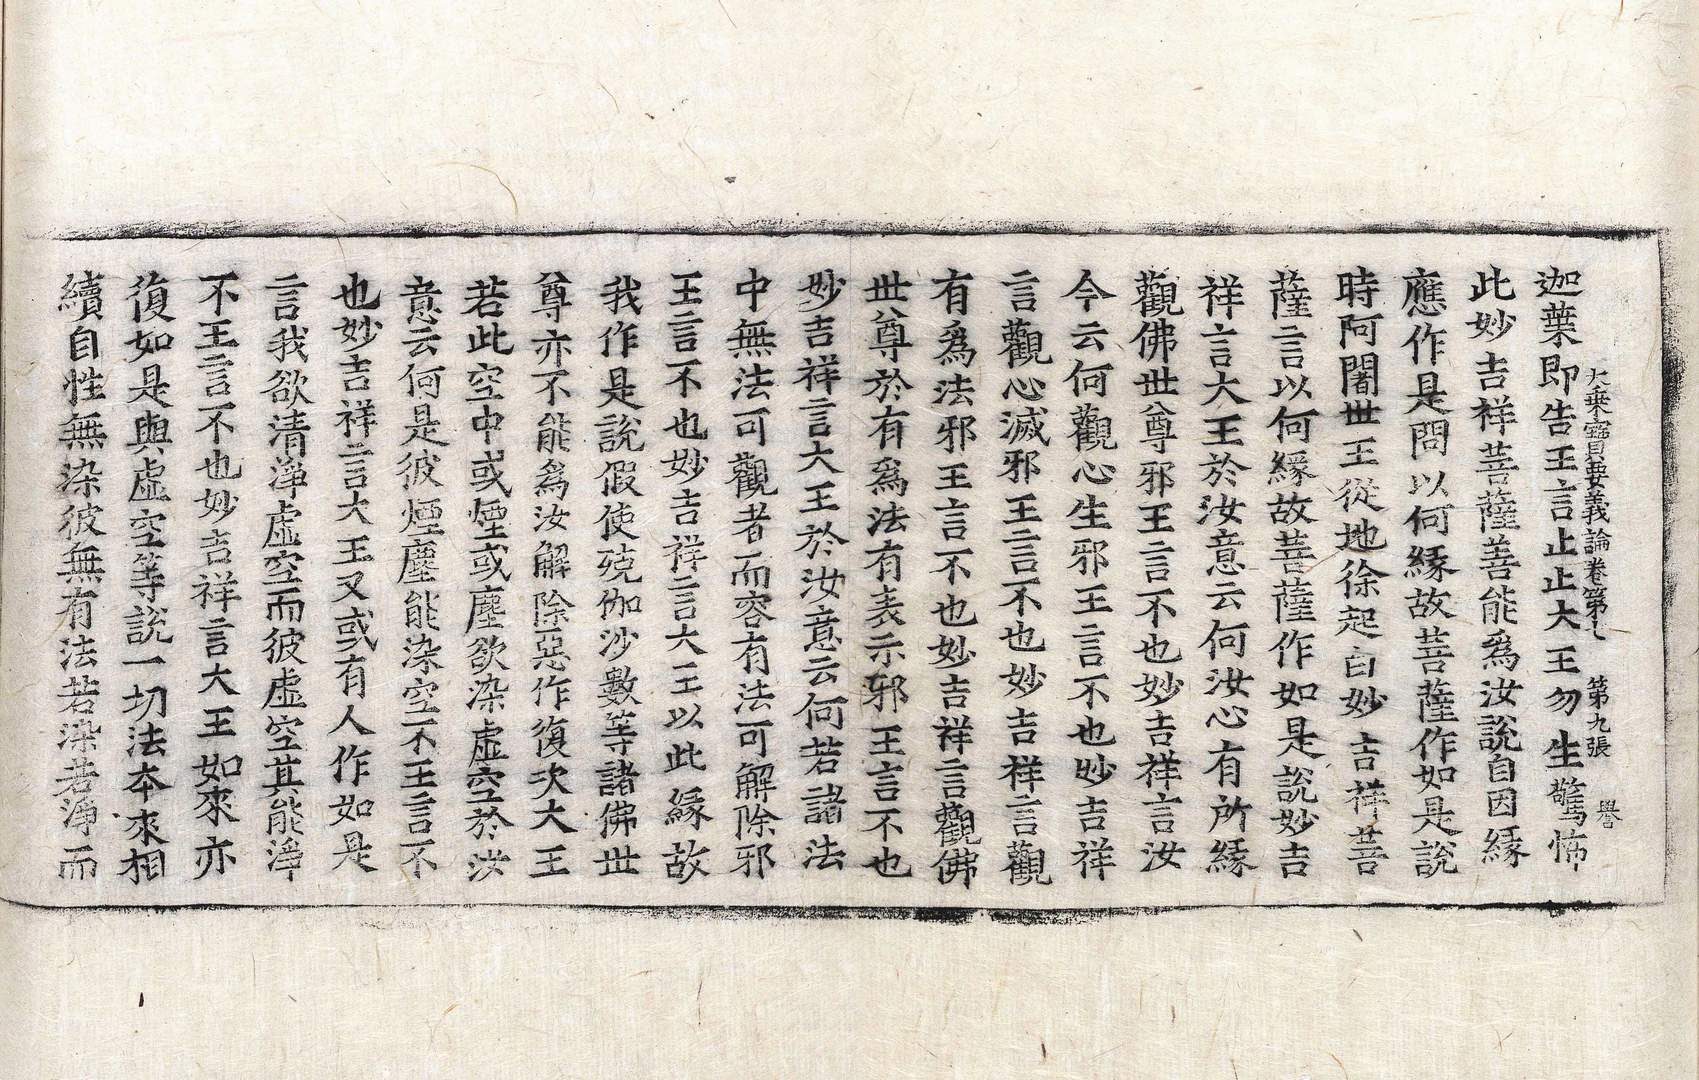 大乘寶要義論卷第七　第九張　譽
迦葉即告王言止止大王勿生驚怖
此妙吉祥菩薩善能爲汝說自因緣
應作是問以何緣故菩薩作如是說
時阿闍世王從地徐起白妙吉祥菩
薩言以何緣故菩薩作如是說妙吉
祥言大王於汝意云何汝心有所緣
觀佛世尊邪王言不也妙吉祥言汝
今云何觀心生邪王言不也妙吉祥
言觀心滅邪王言不也妙吉祥言觀
有爲法邪王言不也妙吉祥言觀佛
世尊於有爲法有表示邪王言不也
妙吉祥言大王於汝意云何若諸法
中無法可觀者而容有法可解除邪
王言不也妙吉祥言大王以此緣故
我作是說假使殑伽沙數等諸佛世
尊亦不能爲汝解除惡作復次大王
若此空中或煙或塵欲染虛空於汝
意云何是彼煙塵能染空不王言不
也妙吉祥言大王又或有人作如是
言我欲清淨虛空而彼虛空其能淨
不王言不也妙吉祥言大王如來亦
復如是與虛空等說一切法本來相
續自性無染彼無有法若染若淨而